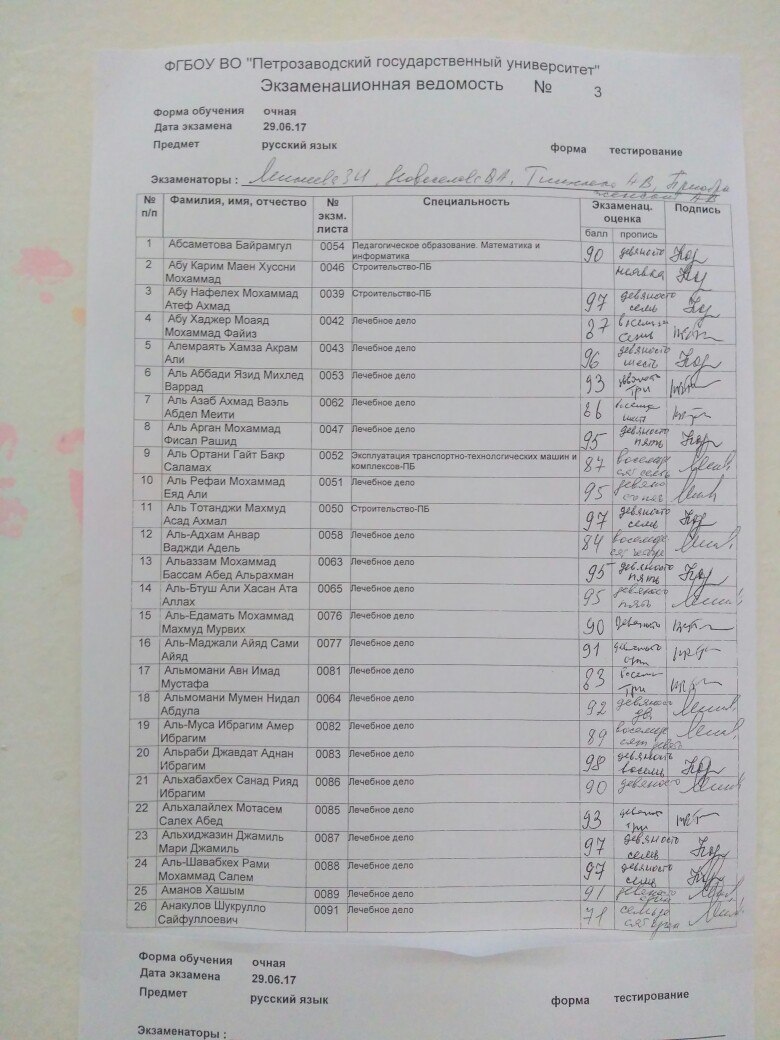 ФГБОУ ВО "Петрозаводский государственный университет"
Экзаменационная ведомость № 3
Форма обучения очная
Дата экзамена 29.06.17
Предмет русский язык форма тестирование
Экзаменаторы :
№ п/п Фамилия, имя, отчество № экзм. листа Специальность Экзаменац. оценка балл пропись Подпись
1 Абсаметова Байрамгул 0054 Педагогическое образование. Математика и информатика 90 девяносто
2 Абу Карим Маен Хуссни Мохаммад 0046 Строительство-ПБ неявка
3 Абу Нафелех Мохаммад Атеф Ахмад 0039 Строительство-ПБ 97 девяносто семь
4 Абу Хаджер Моаяд Мохаммад Файиз 0042 Лечебное дело 87
5 Алемраять Хамза Акрам Али 0043 Лечебное дело 96 девяносто шесть
6 Аль Аббади Язид Михлед Варрад 0053 Лечебное дело 93 три
7 Аль Азаб Ахмад Ваэль Абдел Меити 0062 Лечебное дело 86
8 Аль Арган Мохаммад Фисал Рашид 0047 Лечебное дело 95 девяносто пять
9 Аль Ортани Гайт Бакр Саламах 0052 Эксплуатация транспортно-технологических машин и комплексов-ПБ 87 восемьде сят семь
10 Аль Рефаи Мохаммад Еяд Али 0051 Лечебное дело 95
11 Аль Тотанджи Махмуд Асад Ахмал 0050 Строительство-ПБ 97 девяносто семь
12 Аль-Адхам Анвар Ваджди Адель 0058 Лечебное дело 84
13 Альаззам Мохаммад Бассам Абед Альрахман 0063 Лечебное дело 95 девяносто пять
14 Аль-Бтуш Али Хасан Ата Аллах 0065 Лечебное дело 95 девяносто пять
15 Аль-Едамать Мохаммад Махмуд Мурвих 0076 Лечебное дело 90 девяносто
16 Аль-Маджали Айяд Сами Айяд 0077 Лечебное дело 91
17 Альмомани Авн Имад Мустафа 0081 Лечебное дело 83 три
18 Альмомани Мумен Нидал Абдула 0064 Лечебное дело 92 девяносто два
19 Аль-Муса Ибрагим Амер Ибрагим 0082 Лечебное дело 89
20 Альраби Джавдат Аднан Ибрагим 0083 Лечебное дело 98 девяносто восемь
21 Альхабахбех Санад Рияд Ибрагим 0086 Лечебное дело 90 девяносто
22 Альхалайлех Мотасем Салех Абед 0085 Лечебное дело 93 три
23 Альхиджазин Джамиль Мари Джамиль 0087 Лечебное дело 97 девяносто семь
24 Аль-Шавабкех Рами Мохаммад Салем 0088 Лечебное дело 97 девяносто семь
25 Аманов Хашым 0089 Лечебное дело 91
26 Анакулов Шукрулло Сайфуллоевич 0091 Лечебное дело 71
Форма обучения очная
Дата экзамена 29.06.17
Предмет русский язык форма тестирование
Экзаменаторы :